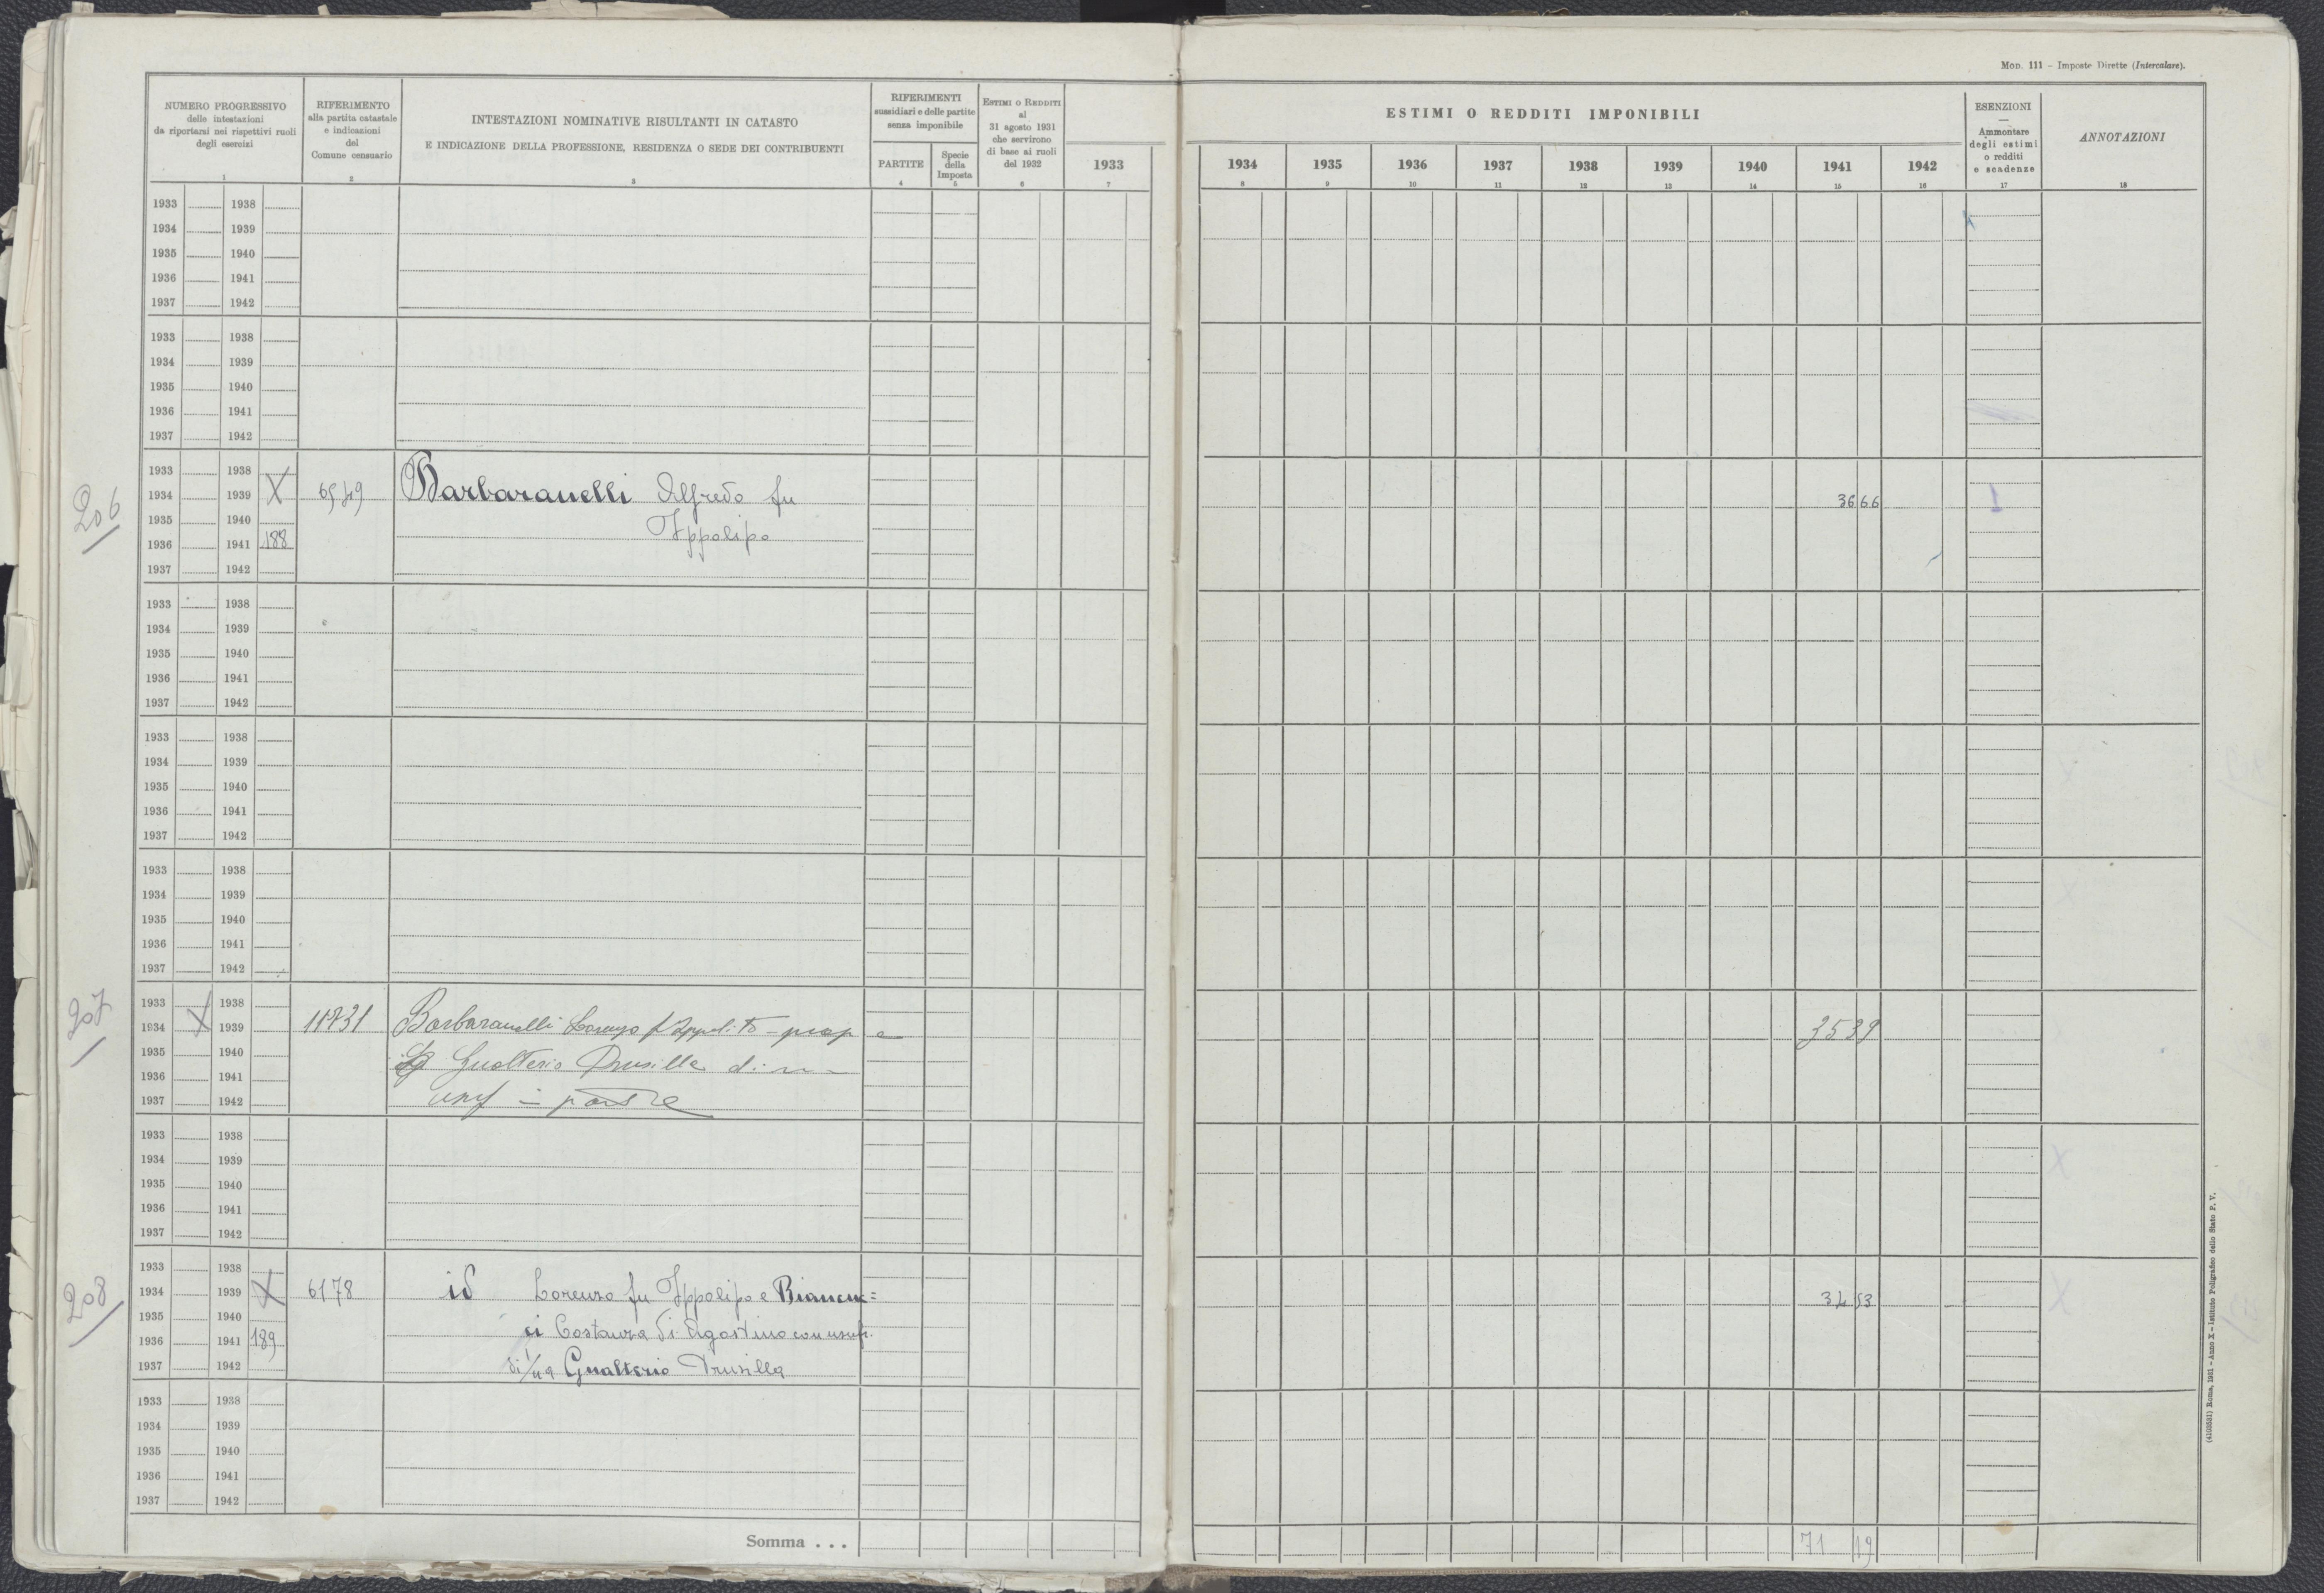 Mod. 111 – Imposte Dirette (Intercalare).
NUMERO PROGRESSIVO
delle intestazioni
da riportarsi nei rispettivi ruoli
degli esercizi
1
RIFERIMENTO
alla partita catastale
e indicazioni
del
Comune censuario
2
INTESTAZIONI NOMINATIVE RISULTANTI IN CATASTO
E INDICAZIONE DELLA PROFESSIONE, RESIDENZA O SEDE DEI CONTRIBUENTI
3
RIFERIMENTI
sussidiari e delle partite
senza imponibile
PARTITE
4
Specie
della
Imposta
5
ESTIMI O REDDITI
al
31 agosto 1931
che servirono
di base ai ruoli
del 1932
6
1933
7
ESTIMI O REDDITI IMPONIBILI
1934 1935 1936 1937 1938 1939 1940 1941 1942
8 9 10 11 12 13 14 15 16
ESENZIONI
—
Ammontare
degli estimi
o redditi
e scadenze
17
ANNOTAZIONI
18
1933 1938
1934 1939
1935 1940
1936 1941
1937 1942
1933 1938
1934 1939
1935 1940
1936 1941
1937 1942
206
1933 1938 X
1934 1939 6549 Barbaranelli Alfredo fu 3666
1935 1940 Ippolipo
1936 1941 188
1937 1942
1933 1938
1934 1939
1935 1940
1936 1941
1937 1942
1933 1938
1934 1939
1935 1940
1936 1941
1937 1942
1933 1938
1934 1939
1935 1940
1936 1941
1937 1942
207
1933 X 1938
1934 1939 11731 Barbaranelli Lorenzo f Ippolito – prop e 3539
1935 1940 Gualterio Drusilla
1936 1941
1937 1942 usuf –
1933 1938
1934 1939
1935 1940
1936 1941
1937 1942
208
1933 1938
1934 1939 X 6178 id Lorenzo fu Ippolipo e Biancu= 3453
1935 1940
1936 1941 189 ci Costanza di Agostino con usuf.
1937 1942 di 1/4a Gualterio Drusilla
1933 1938
1934 1939
1935 1940
1936 1941
1937 1942
Somma . . . 71 19
(4103531) Roma, 1931 – Anno X – Istituto Poligrafico dello Stato P. V.